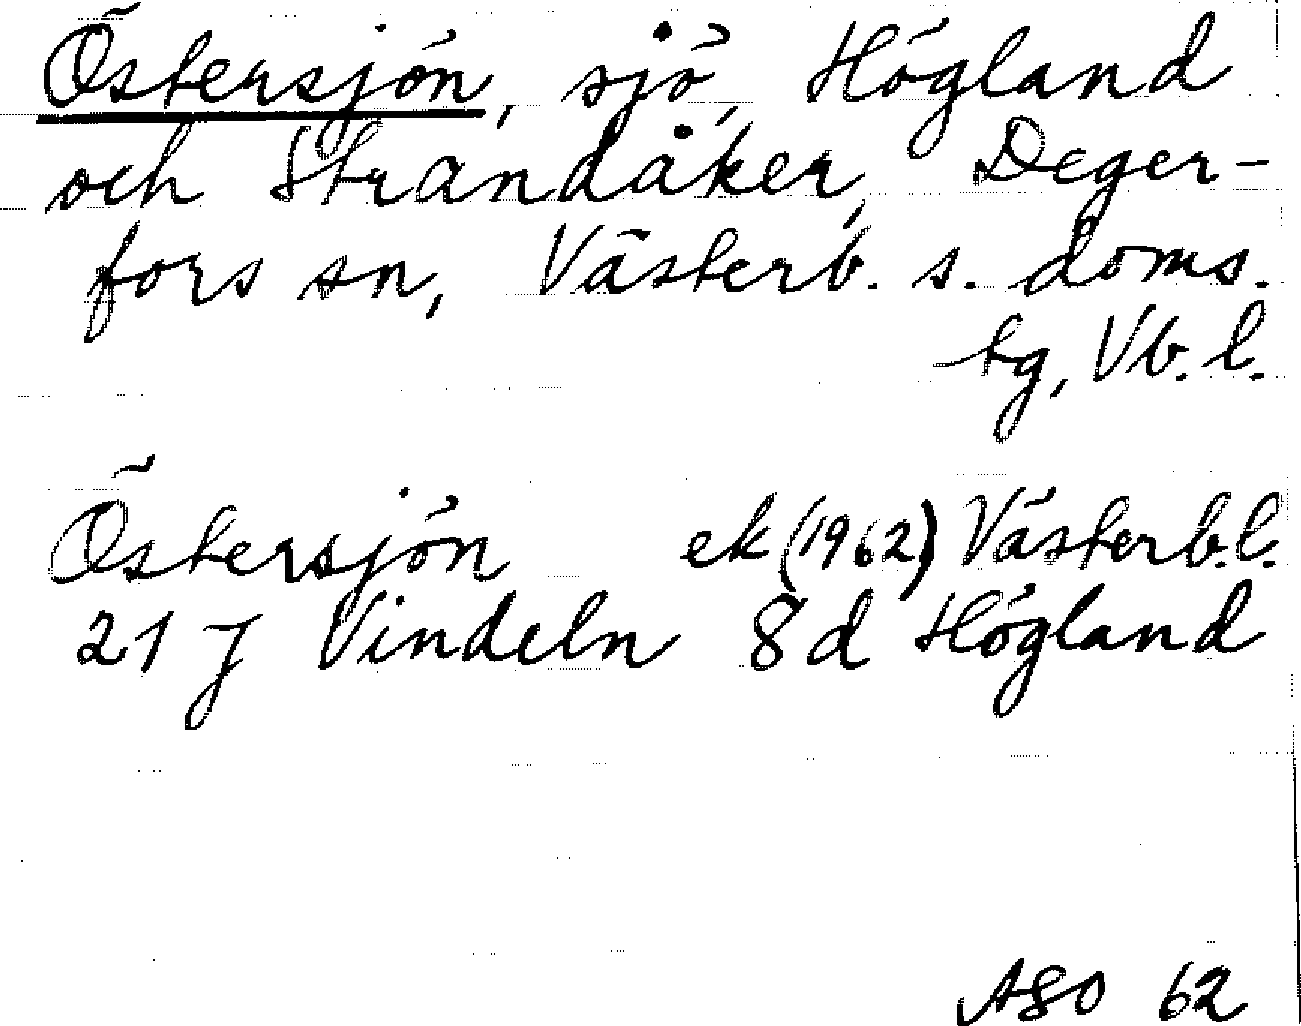 Östersjön, sjö, Högland
och Strandåker, Deger-
fors sn, Västerb. s. doms.
tg, Vb. l.
Östersjön ek (1962) Västerb.l.
21 J Vindeln 8d Högland
ASO 62